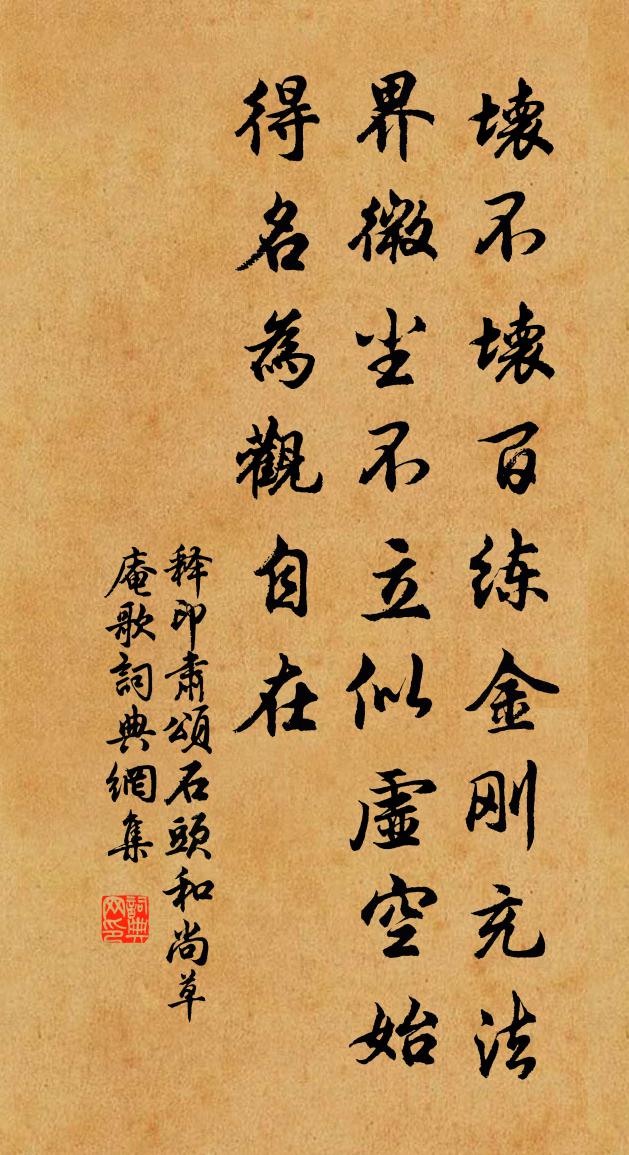 壞不壞百练金刚充法
界微尘不立似虛空始
得名為觀自在
释印肃頌石頭和尚草
庵歌詞典網集
詞典网印